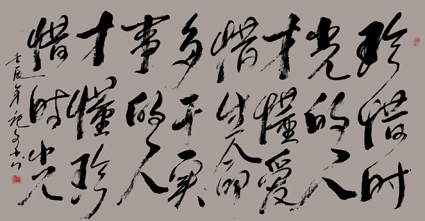 珍惜时
光的人
才懂爱
惜生命
多干实
事的人
才懂珍
惜时光
壬辰年